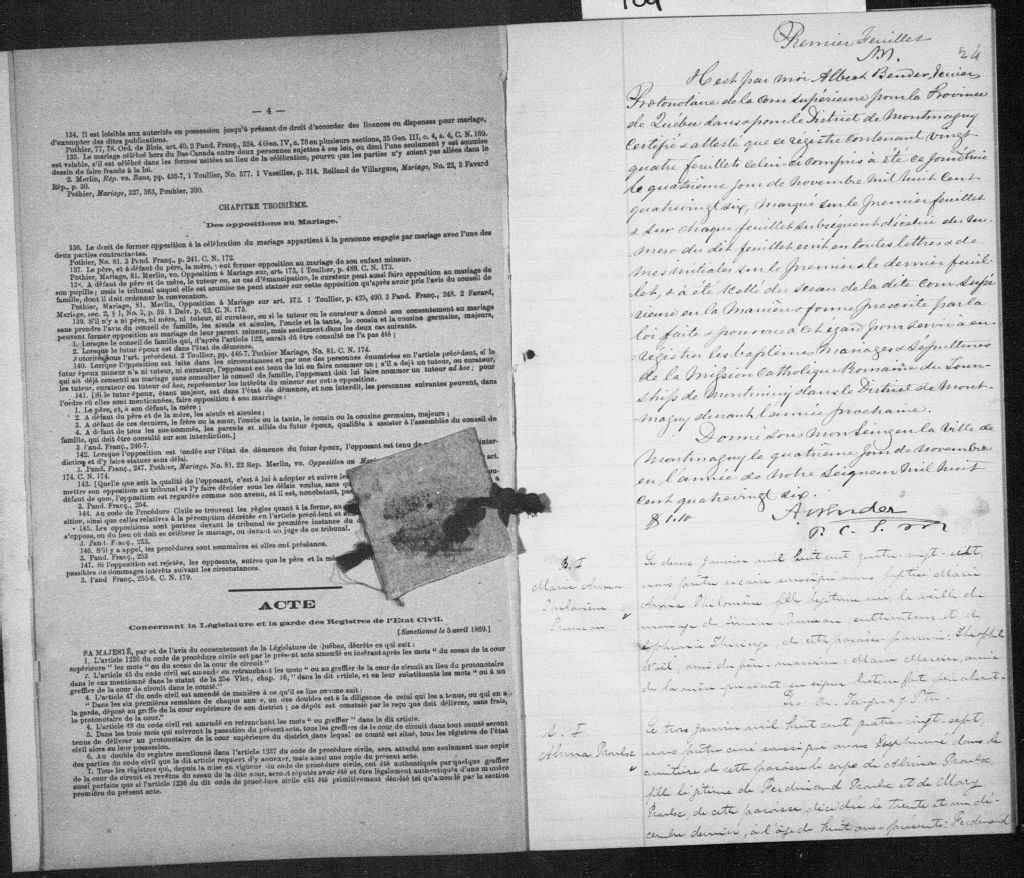 — 4 —
134. Il est loisible aux autorités en possession jusqu'à présent du droit d'accorder des licences ou dispenses pour mariage,
d'exempter des dites publications.
Pothier, 77, 78, Ord. de Blois, art. 40. 2 Pand. Franç., 324. 4 Geo. IV, a. 76 en plusieurs sections, 35 Geo. III, c. 4, s. 4, C. N. 169.
135. Le mariage célébré hors du Bas-Canada entre deux personnes sujettes à ses lois, ou dont l'une seulement y est soumise
est valable, s'il est célébré dans les formes usitées au lieu de la célébration, pourvu que les parties n'y soient pas allées dans le
dessin de faire fraude à la loi.
2. Merlin, Rép. vo. Bans, pp. 436-7, 1 Toullier, No. 577. 1 Vazeilles, p. 314. Rolland de Villargues, Mariage, No. 22, 3 Favard
Rép., p. 30.
Pothier, Mariage, 327, 363, Pouhier, 390.
CHAPITRE TROISIÈME.
Des oppositions au Mariage.
136. Le droit de former opposition à la célébration du mariage appartient à la personne engagée par mariage avec l'une des
deux parties contractantes.
Pothier, No. 81. 3 Pand. Franç., p. 241. C. N. 172.
137. Le père, et à défaut du père, la mère, peut former opposition au mariage de son enfant mineur.
Pothier, Mariage, 81. Merlin, vo. Opposition à Mariage sur, art. 173, 1 Toullier, p. 489. C. N. 173.
138. A défaut de père et de mère, le tuteur ou, au cas d'émancipation, le curateur peut aussi faire opposition au mariage de
son pupille; mais le tribunal auquel elle est soumise ne peut statuer sur cette opposition qu'après avoir pris l'avis du conseil de
famille, dont il doit ordonner la convocation.
Pothier, Mariage, 81, Merlin, Opposition à Mariage sur art. 172. 1 Toullier, p. 425, 490. 3 Pand. Franç., 248. 2 Favard,
Mariage, sec. 2, § 1, No. 3, p. 59. 1 Delv. p. 62. C. N. 175.
139. S'il n'y a ni père, ni mère, ni tuteur, ni curateur, ou si le tuteur ou le curateur a donné son consentement au mariage
sans prendre l'avis du conseil de famille, les aïeuls et aïeules, l'oncle et la tante, le cousin et la cousine germains, majeurs,
peuvent former opposition au mariage de leur parent mineur, mais seulement dans les deux cas suivants.
1. Lorsque le conseil de famille qui, d'après l'article 122, aurait dû être consulté ne l'a pas été;
2. Lorsque le futur époux est dans l'état de démence.
Autorités sous l'art. précédent. 2 Toullier, pp. 446-7. Pothier Mariage, No. 81. C. N. 174.
140. Lorsque l'opposition est faite dans les circonstances et par une des personnes énumérées en l'article précédent, si le
futur époux mineur n'a ni tuteur, ni curateur, l'opposant est tenu de lui en faire nommer un; s'il a déjà un tuteur, ou curateur,
qui ait déjà consenti au mariage sans consulter le conseil de famille, l'opposant doit lui faire nommer un tuteur ad hoc; pour
les tuteur, curateur ou tuteur ad hoc, représenter les intérêts du mineur sur cette opposition.
141. [Si le futur époux, étant majeur, est dans l'état de démence, et non interdit, les personnes suivantes peuvent, dans
l'ordre où elles sont mentionnées, faire opposition à son mariage:
1. Le père, et, à son défaut, la mère;
2. A défaut du père et de la mère, les aïeuls et aïeules;
3. A défaut de ces derniers, le frère ou la sœur, l'oncle ou la tante, le cousin ou la cousine germains, majeurs;
4. A défaut de tous les sus-nommés, les parents et alliés du futur époux, qualifiés à assister à l'assemblée du conseil de
famille, qui doit être consulté sur son interdiction.]
3 Pand. Franç., 246-7.
142. Lorsque l'opposition est fondée sur l'état de démence du futur époux, l'opposant est tenu de
diction et d'y faire statuer sans délai.
3. Pand. Franç., 247. Pothier, Mariage. No. 81, 22 Rep. Merlin, vo. Opposition au
174. C. N. 174.
143. [Quelle que soit la qualité de l'opposant, c'est à lui à adopter et suivre les
mettre son opposition au tribunal et l'y faire décider sous les délais voulus, sans qu
défaut de quoi, l'opposition est regardée comme non avenue, et il est, nonobstant,
3. Pand. Franç., 254.
144. Au code de Procédure Civile se trouvent les règles quant à la forme, au
sition, ainsi que celles relatives à la péremption décrétée en l'article précédent et
145. Les oppositions sont portées devant le tribunal de première instance du
s'oppose, ou du lieu où doit se célébrer le mariage, ou devant un juge de ce tribunal.
3. Pand. Franç., 253.
146. S'il y a appel, les procédures sont sommaires et elles ont préséance.
3. Pand. Franç., 253
147. Si l'opposition est rejetée, les opposants, autres que le père et la mè
passibles de dommages intérêts suivant les circonstances.
3. Pand. Franç., 255-6. C. N. 179.
ACTE
Concernant la Législature et la garde des Registres de l'Etat Civil.
[Sanctionné le 5 avril 1869.]
SA MAJESTÉ, par et de l'avis du consentement de la Législature de Québec, décrète ce qui suit:
1. L'article 1236 du code de procédure civile est par le présent acte amendé en insérant après les mots "du sceau de la cour
supérieure" les mots "ou du sceau de la cour de circuit"
2. L'article 45 du code civil est amendé en retranchant les mots "ou au greffier de la cour de circuit au lieu du protonotaire
dans le cas mentionné dans le statut de la 25e Vict, chap. 16," dans le dit article, et en leur substituant les mots "ou à un
greffier de la cour de circuit dans le comté."
4. L'article 47 du code civil est amendé de manière à ce qu'il se lise comme suit:
"Dans les six premières semaines de chaque année, un des doubles est à la diligence de celui qui les a tenus, ou qui en a
la garde, déposé au greffe de la cour supérieure de son district; ce dépôt est constaté par le reçu que doit délivrer, sans frais,
le protonotaire de la cour."
4. L'article 48 du code civil est amendé en retranchant les mots "ou greffier" dans le dit article.
5. Dans les trois mois qui suivront la passation du présent acte, tous les greffiers de la cour de circuit dans tout comté seront
tenus de délivrer au protonotaire de la cour supérieure du district dans lequel ce comté est situé, tous les registres de l'état
civil alors en leur possession.
6. Au double du registre mentionné dans l'article 1237 du code de procédure civile, sera attaché non seulement une copie
des parties du code civil que le dit article requiert d'y annexer, mais aussi une copie du présent acte.
7. Tous les registres qui, depuis la mise en vigueur du code de procédure civile, ont été authentiqués par quelque greffier
de la cour de circuit et revêtus du sceau de la dite cour, seront réputés avoir été et être légalement authentiqués d'une manière
aussi parfaite que si l'article 1236 du dit code de procédure civile eût été primitivement décrété tel qu'amendé par la section
première du présent acte.
Premier Feuillet
24
Il est par moi Albert Bender, Junior,
Protonotaire de la cour supérieure pour la Province
de Québec dans & pour le District de Montmagny
certifié & attesté que ce régistre contenant vingt
quatre feuillets celui-ci compris a été ce jourd'hui
le quatrième jour de novembre mil huit cent
quatrevingt six, marqué sur le premier feuillet
& sur chaque feuillet subséquent d'icelui du nu-
mero du dit feuillet écrit en toutes lettres & de
mes initiales sur le premier & le dernier feuil-
let, & a été scellé du sceau de la dite cour supé-
rieure en la manière & forme prescrite par la
loi faite & pourvue à cet égard pour servir à en-
régistrer les baptêmes Mariages & sépultures
de la Mission Catholique Romaine du Town-
ship de Montminy dans le District de Mont-
magny durant l'année prochaine.
Donné sous mon seing en la ville de
Montmagny le quatrième jour de novembre
en l'année de notre Seigneur mil huit
cent quatrevingt six.
$1.10
A. Bender
P. C. S. M
B. 1
Marie
Philomène
Le deux janvier mil huit cent quatre-vingt-sept,
nous prêtre vicaire soussigné avons baptisé Marie
Philomène, fille légitime née la veille du
mariage de
de cette paroisse parrain: Théophile
ami du père marraine: Marie Mercier, amie
de la mère
Ptre
S. 1
Proulx
Le trois janvier mil huit cent quatre-vingt-sept,
nous prêtre curé soussigné avons inhumé dans le
cimetière de cette paroisse le corps de Proulx
fille légitime de Ferdinand Proulx et de Mary
Proulx, de cette paroisse, décédée le trente et un dé-
cembre dernier, à l'âge de huit ans présents: Ferdinand